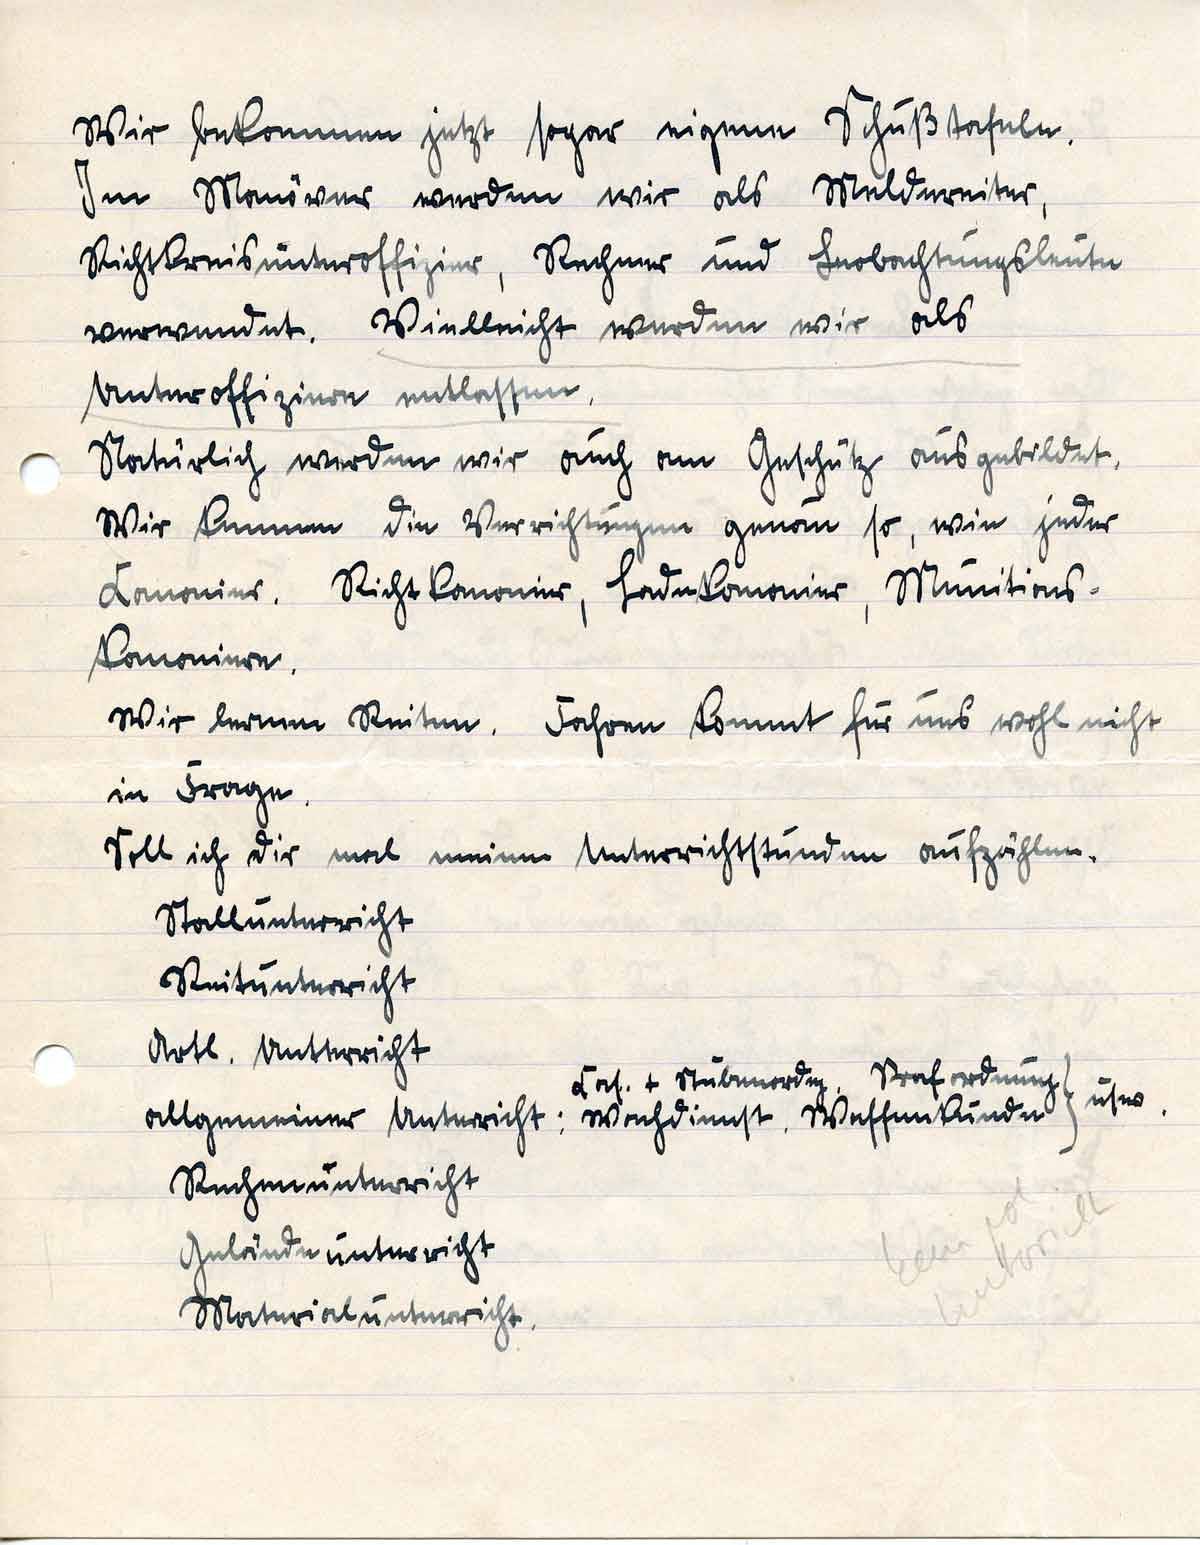 Wir bekommen jetzt sogar eigene Schußtafeln.
Im Manöver werden wir als Meldereiter,
Richtkreisunteroffizier, Rechner und Beobachtungsleute
verwendet. Vielleicht werden wir als
Unteroffiziere entlassen.
Natürlich werden wir auch am Geschütz ausgebildet.
Wir kennen die Verrichtungen genau so, wie jeder
Kanonier. Richtkanonier, Ladekanonier, Munitions-
kanoniere.
Wir lernen Reiten. Fahren kommt für uns wohl nicht
in Frage.
Soll ich dir mal meine Unterrichtstunden aufzählen.
Stallunterricht
Reitunterricht
Artl. Unterricht
Kas. + Stubenordng. Strafordnung
allgemeiner Unterricht: Wachdienst, Waffenkunde } usw.
Rechenunterricht
Geländeunterricht
Materialunterricht.